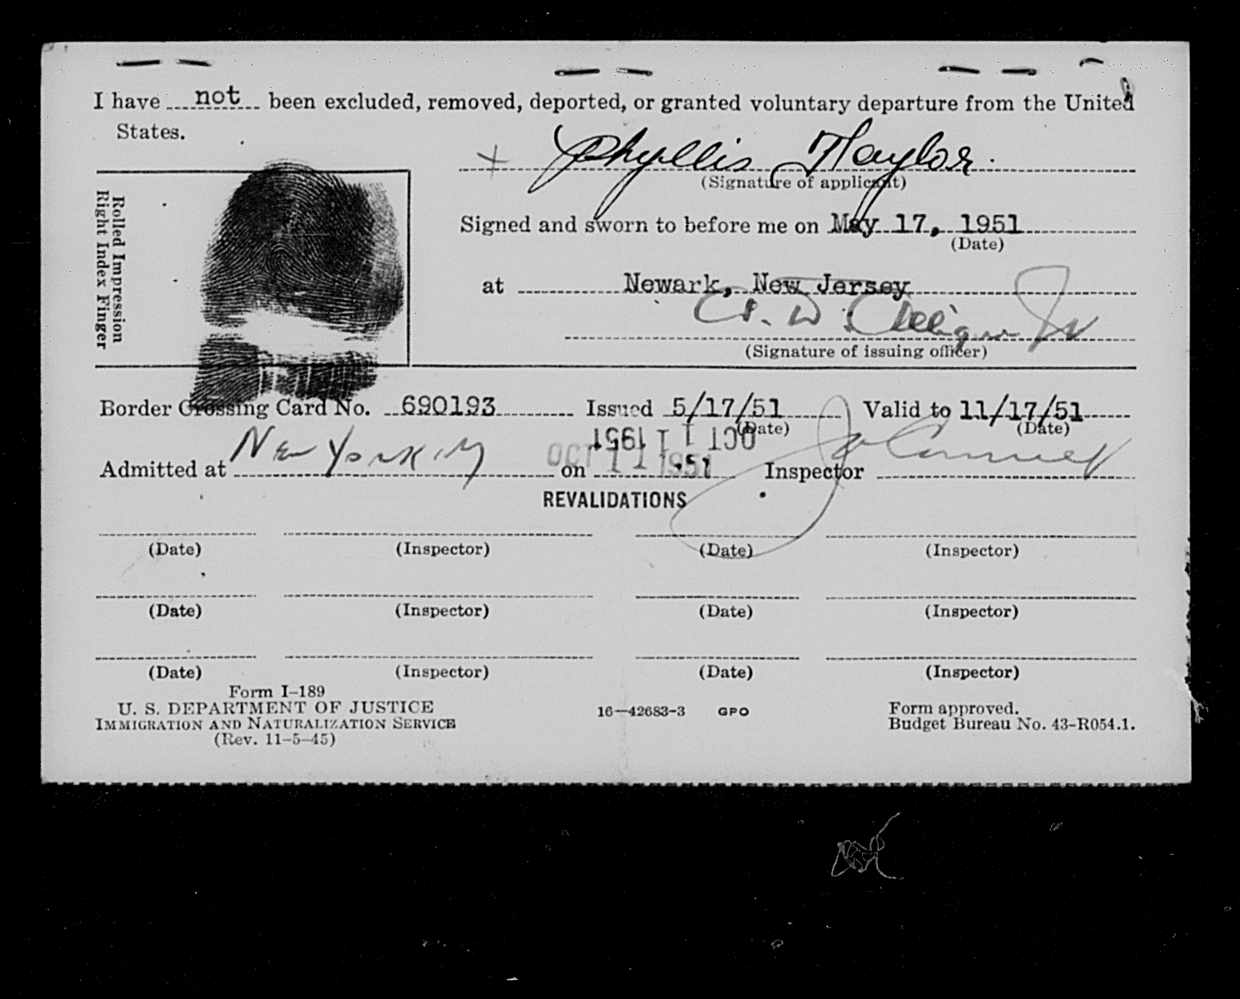 I have not been excluded, removed, deported, or granted voluntary departure from the United
States.
Phyllis Taylor
(Signature of applicant)
Rolled Impression
Right Index Finger
Signed and sworn to before me on May 17, 1951
(Date)
at Newark, New Jersey
(Signature of issuing officer)
Border Crossing Card No. 690193 Issued 5/17/51 Valid to 11/17/51
(Date) (Date)
OCT 11 1951
Admitted at New York NY on OCT 11 1951 Inspector
REVALIDATIONS
(Date) (Inspector) (Date) (Inspector)
(Date) (Inspector) (Date) (Inspector)
(Date) (Inspector) (Date) (Inspector)
Form I-189
U. S. DEPARTMENT OF JUSTICE
IMMIGRATION AND NATURALIZATION SERVICE
(Rev. 11-5-45)
16—42683-3 GPO
Form approved.
Budget Bureau No. 43-R054.1.